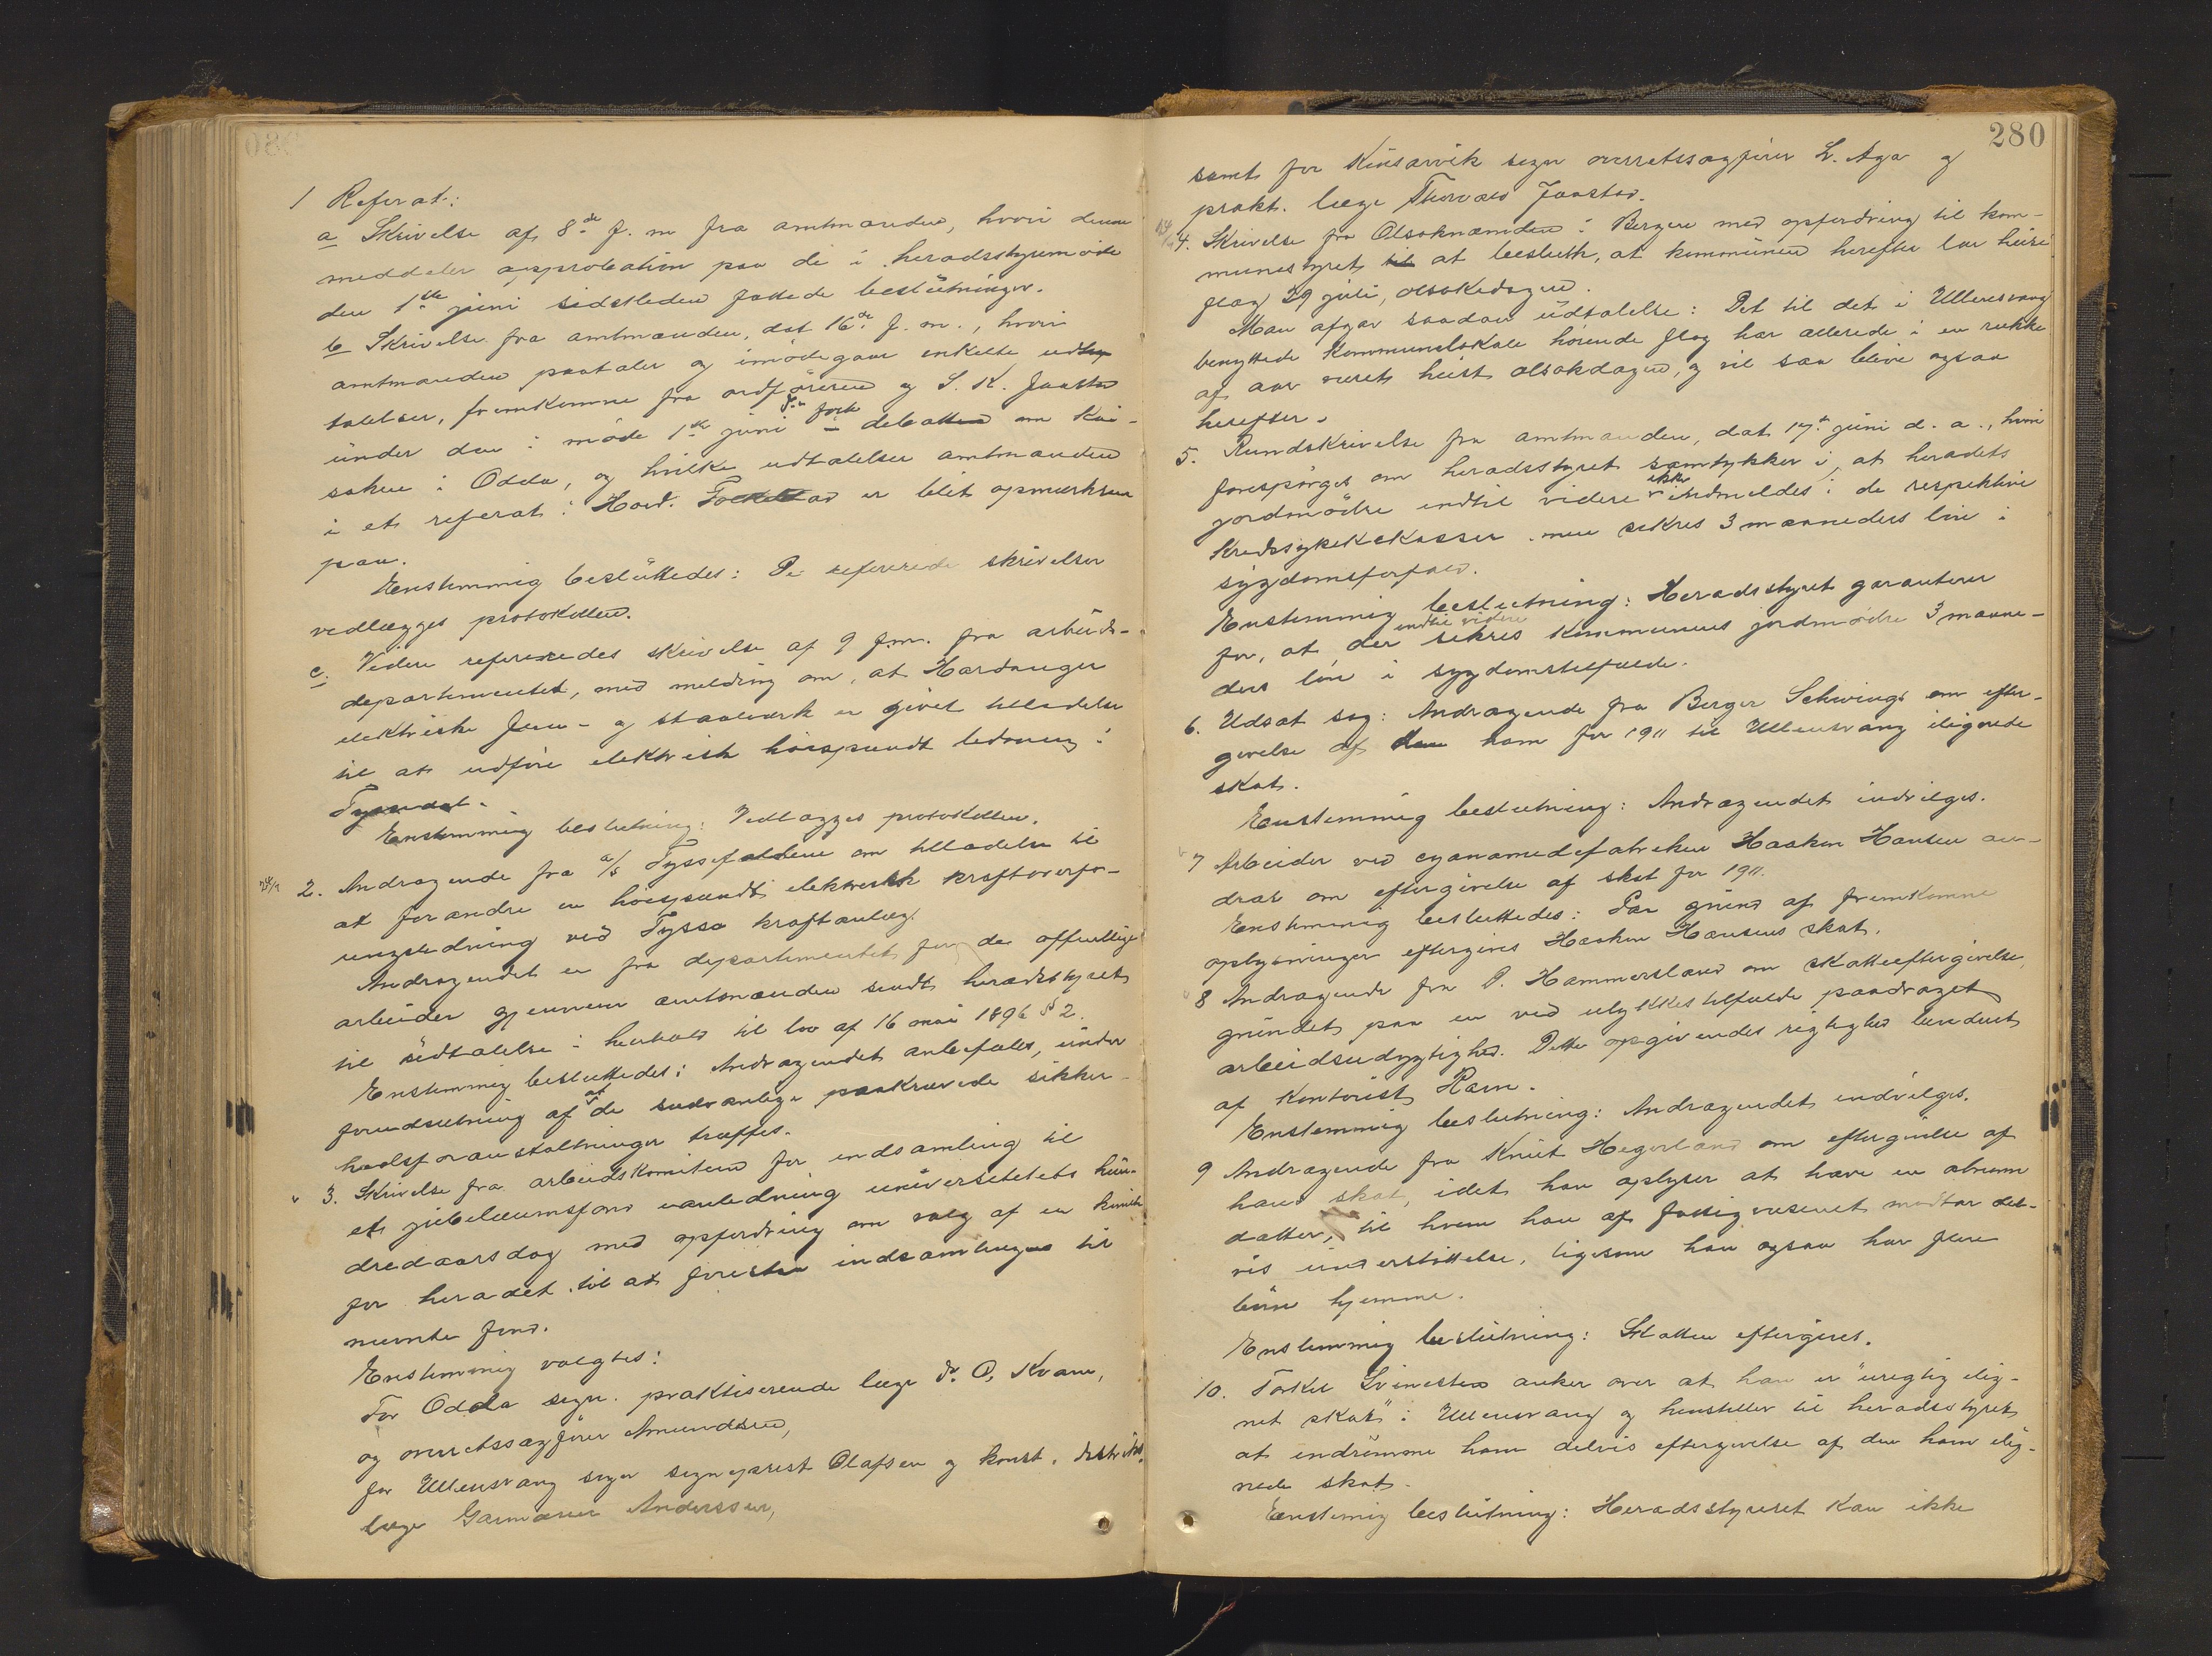 1 Referat:
a Skrivelse af 8de f. m fra amtmanden, hvori denne
meddeler approbation paa de i heradsstyremöde
den 1ste juni sidstleden fattede beslutninger.
b Skrivelse fra amtmanden, dat 16de f. m., hvori
amtmanden paataler og imödegaar enkelte udta-
talelser, fremkomne fra ordföreren og S. K. Jaastad
under den i möde 1ste juni förte debatten om kai-
saken i Odda, og hvilke udtalelser amtmanden
i et referat i Hard. Folkeblad er blit opmerksom
paa.
Enstemmig besluttedes: De refererede skrivelser
vedlægges protokollen.
c. Videre refereredes skrivelse af 9 f.m. fra arbeids-
departementet, med melding om, at Hardanger
elektriske jern- og staalverk er givet tilladelse
til at udföre elektrisk höispændt ledning i
Tyssedal.
Enstemmig beslutning: Vedlægges protokollen.
2. Andragende fra a/s Tyssefaldene om tilladelse til
at forandre en höispændt elektrisk kraftoverfö-
ringsledning ved Tyssa kraftanlæg.
Andragendet er fra departementet for de offentlige
arbeider gjennem amtmanden sendt heradsstyret
til udtalelse i henhold til lov af 16 mai 1896 § 2.
Enstemmig besluttedes: Andragendet anbefales, under
forudsætning af at de sedvanlige paakrævede sikker-
hedsforanstaltninger træffes.
3. Skrivelse fra arbeidskomiteen for indsamling til
et jubilæumsfond i anledning universitetets hun-
dredaarsdag med opfordring om valg af en komite
for heradet til at forestaa indsamlingen til
nævnte fond.
Enstemmig valgtes:
For Odda sogn. praktiserende læge Dr. O. Kvam,
og overretssagförer Amundsen,
for Ullensvang sogn sogneprest Olafsen og konst. distrikts-
læge Garmann Anderssen,
280
samt for Kinsarvik sogn overretssagförer L. Aga og
prakt. læge Thorvald Jaastad.
4. Skrivelse fra Olsoknæmnden i Bergen med opfordring til kom-
munestyret til at beslutte, at kommunen herefter lar heise
flag 29 juli, olsokdagen.
Man afgav saadan udtalelse: Det til det i Ullensvang
benyttede kommunelokale hörende flag har allerede i en række
af aar været heist olsokdagen, og vil saa blive ogsaa
herefter.
5. Rundskrivelse fra amtmanden, dat 17de juni d. a., hvori
forespörges om heradsstyret samtykker i, at heradets
jordmödre indtil videre ikke indmeldes i de respektive
kredssykekasser men sikres 3 maaneders lön i
sygdomsforfald.
Enstemmig beslutning: Heradsstyret garanterer
for, at der indtil videre sikres kommunens jordmödre 3 maane-
ders lön i sygdomstilfælde.
6. Udsat sag: Andragende fra Berger Schwings om efter-
givelse af den ham for 1911 til Ullensvang ilignede
skat.
Enstemmig beslutning: Andragendet indvilges.
7 Arbeider ved cyanamidfabriken Haakon Hansen an-
drar om eftergivelse af skat for 1911.
Enstemmig besluttedes: Paa grund af fremkomne
oplysninger eftergives Haakon Hansens skat.
8 Andragende fra P. Hammersland om skatteeftergivelse,
grundet paa en ved ulykkestilfælde paadraget
arbeidsudygtighed. Dette opgivendes rigtighed bevidnet
af kontorist Ravn.
Enstemmig beslutning: Andragendet indvilges.
9 Andragende fra Knut Hegerland om eftergivelse af
hans skat, idet han oplyser at have en aandssvag
datter, til hvem han af fattigvæsenet modtar del-
vis understöttelse, ligesom han ogsaa har flere
börn hjemme.
Enstemmig beslutning: Skatten eftergives.
10. Torkel Lönestræn anker over at han er "urigtig ilig-
net skat" i Ullensvang og henstiller til heradsstyret
at indrömme ham delvis eftergivelse af den ham ilig-
nede skat.
Enstemmig beslutning: Heradsstyreret kan ikke